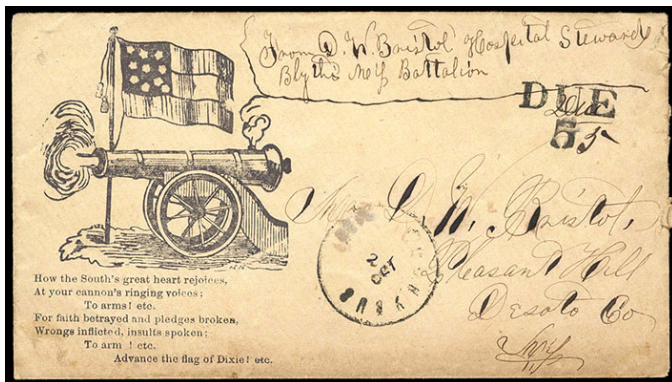 From D. W. Bristol Hospital Steward
Blythe Miss Battalion
DUE
Due
5 5
Mrs D. W. Bristol,
Pleasant Hill
Desoto Co
Miss
2
OCT
How the South's great heart rejoices,
At your cannon's ringing voices;
To arms! etc.
For faith betrayed and pledges broken,
Wrongs inflicted, insults spoken;
To arm ! etc.
Advance the flag of Dixie! etc.